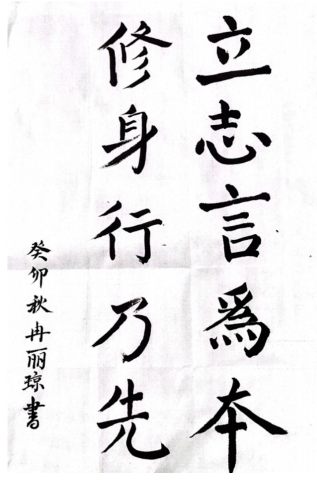 立志言爲本
修身行乃先
癸卯秋冉丽琼書